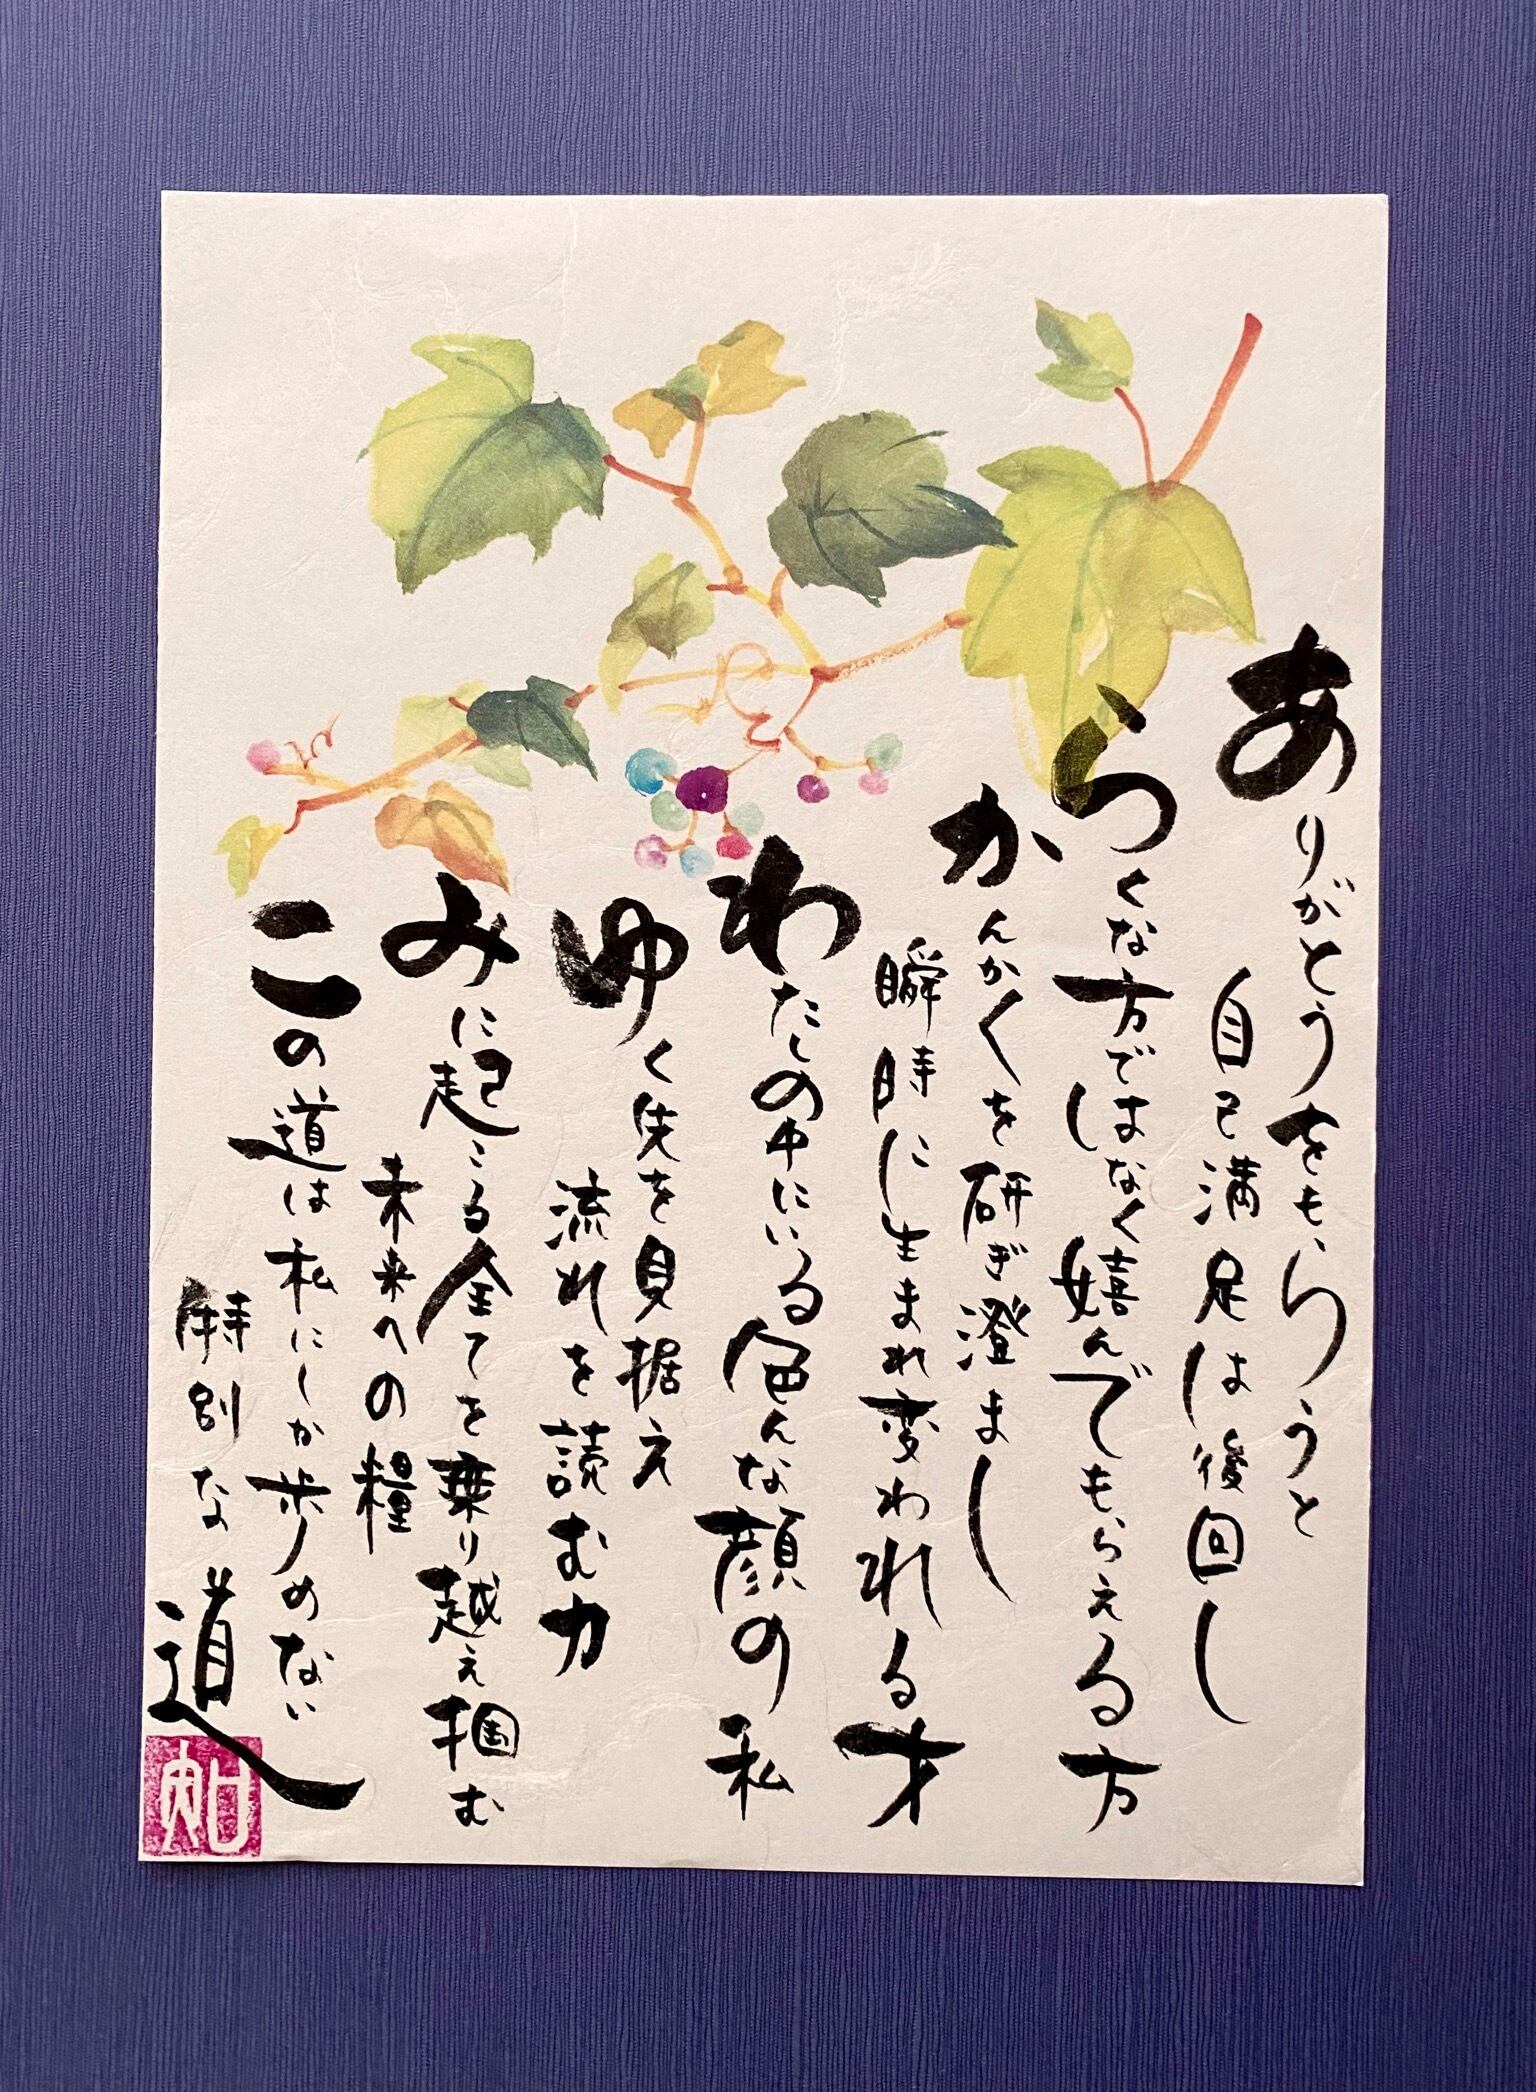 ありがとうをもらうと
自己満足は後回し
らくな方ではなく嬉しんでもらえる方
かんかくを研ぎ澄まし
瞬時に生まれ変われる才
わたしの中にいる色んな顔の私
ゆく先を見据え
流れを読む力
みに起こる全てを乗り越え掴む
未来への糧
この道は私にしか歩めない
特別な道
知